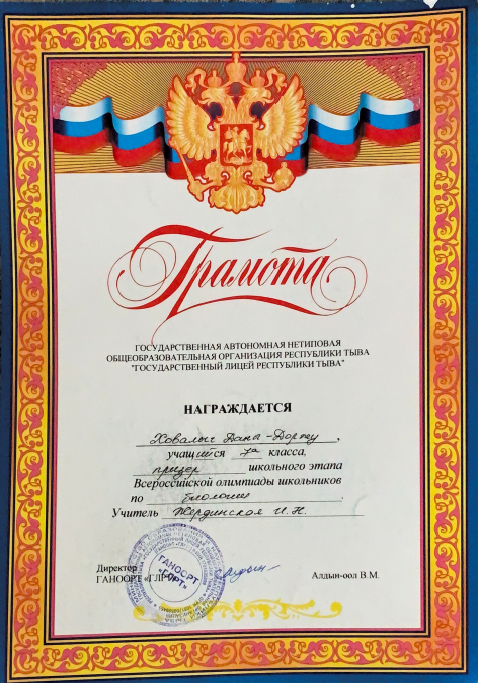 Грамота
ГОСУДАРСТВЕННАЯ АВТОНОМНАЯ НЕТИПОВАЯ
ОБЩЕОБРАЗОВАТЕЛЬНАЯ ОРГАНИЗАЦИЯ РЕСПУБЛИКИ ТЫВА
"ГОСУДАРСТВЕННЫЙ ЛИЦЕЙ РЕСПУБЛИКИ ТЫВА"
НАГРАЖДАЕТСЯ
Ховалыг Дана-Доржу,
учащийся 7а класса,
призер школьного этапа
Всероссийской олимпиады школьников
по биологии.
Учитель Жердинская И.Н.
Директор
ГАНООРТ "ГЛРТ" Алдын-оол В.М.
ГАНООРТ
"ГЛРТ"